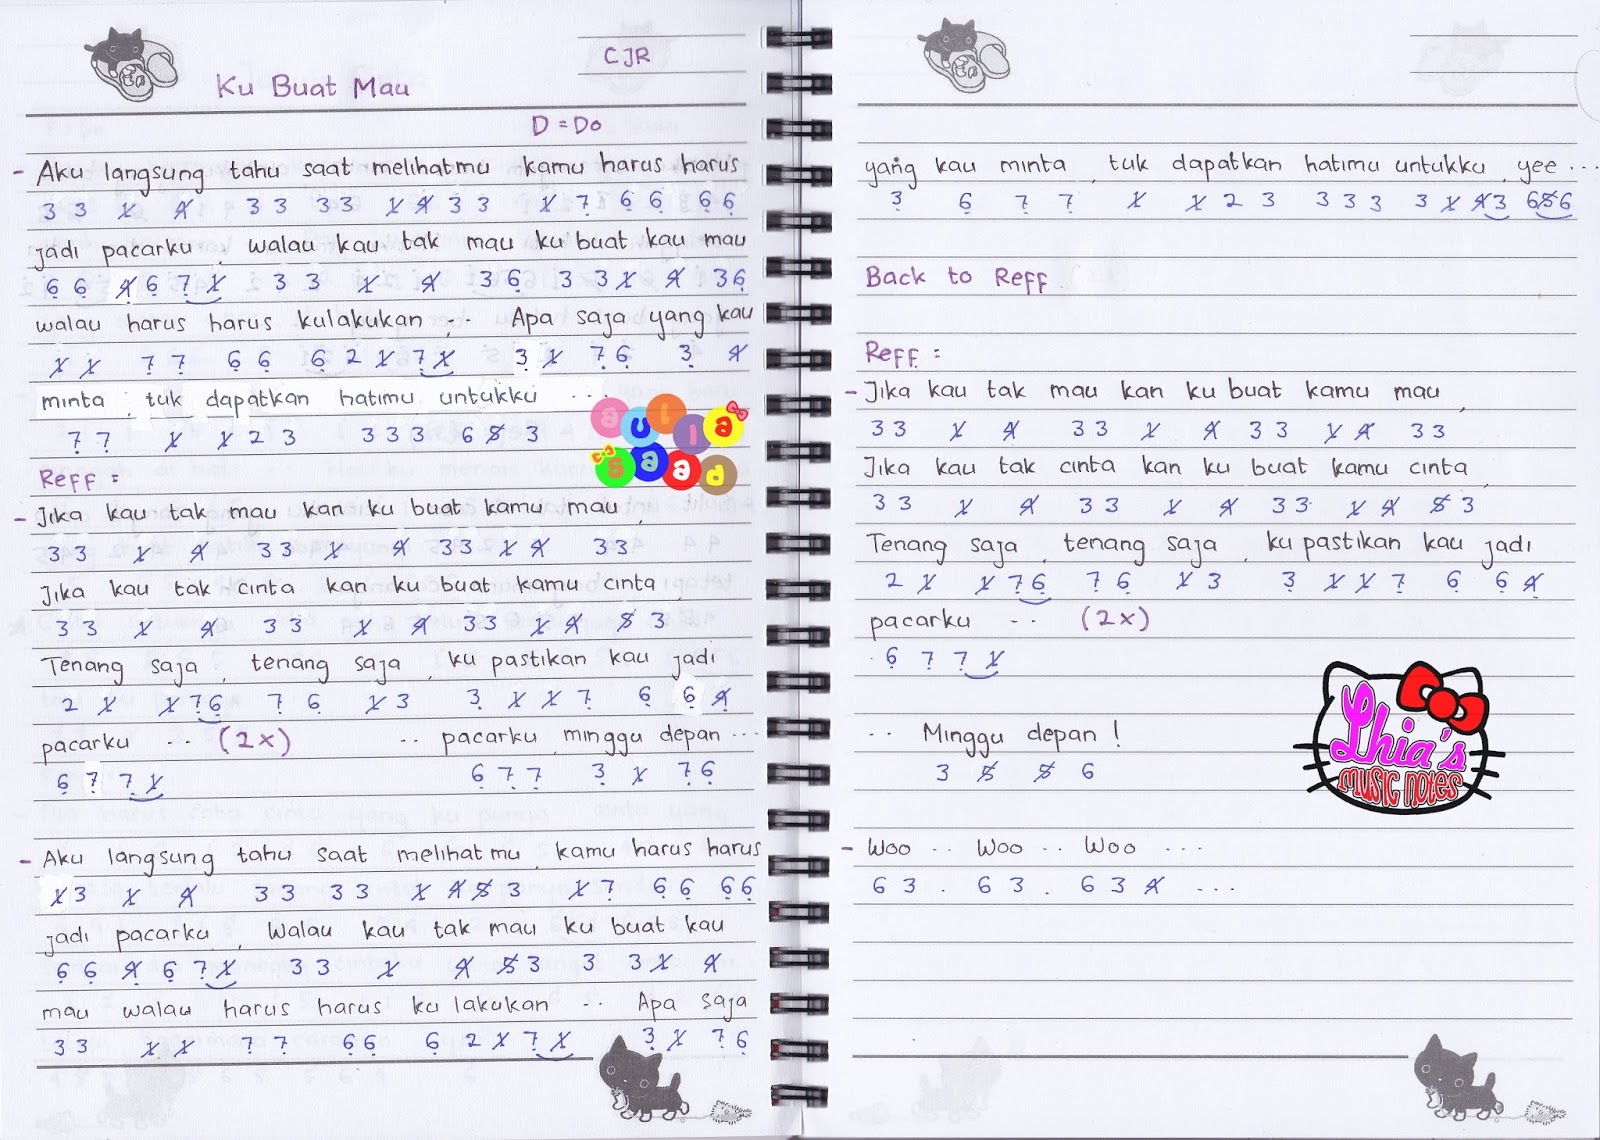 Ku Buat Mau
CJR
D = Do
- Aku langsung tahu saat melihatmu kamu harus harus
3 3 1̸ 4̸ 3 3 3 3 1̸ 4̸ 3 3 1̸ 7̣ 6̣ 6̣ 6̣ 6̣
jadi pacarku, walau kau tak mau ku buat kau mau
6̣ 6̣ 4̸̣ 6̣ 7̣ 1̸ 3 3 1̸ 4̸ 3 6̣ 3 3 1̸ 4̸ 3 6̣
walau harus harus kulakukan, .. Apa saja yang kau
1̸ 1̸ 7̣ 7̣ 6̣ 6̣ 6̣ 2 1̸ 7̣ 1̸ 3̣ 1̸ 7̣ 6̣ 3̣ 4̸
minta, tuk dapatkan hatimu untukku ...
7̣ 7̣ 1̸ 1̸ 2 3 3 3 3 6 5̸ 3
Bulla
Saad
Reff :
- Jika kau tak mau kan ku buat kamu mau,
3 3 1̸ 4̸ 3 3 1̸ 4̸ 3 3 1̸ 4̸ 3 3
Jika kau tak cinta kan ku buat kamu cinta,
3 3 1̸ 4̸ 3 3 1̸ 4̸ 3 3 1̸ 4̸ 5̸ 3
Tenang saja, tenang saja, ku pastikan kau jadi
2 1̸ 1̸ 7̣ 6̣ 7̣ 6̣ 1̸ 3 3̣ 1̸ 1̸ 7̣ 6̣ 6̣ 4̸̣
pacarku .. (2x) .. pacarku, minggu depan ...
6̣ 7̣ 7̣ 1̸ 6̣ 7̣ 7̣ 3̣ 1̸ 7̣ 6̣
- Aku langsung tahu saat melihatmu, kamu harus harus
1̸ 3 1̸ 4̸ 3 3 3 3 1̸ 4̸ 5̸ 3 1̸ 7̣ 6̣ 6̣ 6̣ 6̣
jadi pacarku, walau kau tak mau ku buat kau
6̣ 6̣ 4̸̣ 6̣ 7̣ 1̸ 3 3 1̸ 4̸ 5̸ 3 3 3 1̸ 4̸
mau walau harus harus ku lakukan .. Apa saja
3 3 1̸ 1̸ 7̣ 7̣ 6̣ 6̣ 6̣ 2 1̸ 7̣ 1̸ 3̣ 1̸ 7̣ 6̣
yang kau minta, tuk dapatkan hatimu untukku, yee ...
3̣ 6̣ 7̣ 7̣ 1̸ 1̸ 2 3 3 3 3 3 1̸ 4̸ 3 6 5̸ 6
Back to Reff
Reff :
- Jika kau tak mau kan ku buat kamu mau,
3 3 1̸ 4̸ 3 3 1̸ 4̸ 3 3 1̸ 4̸ 3 3
Jika kau tak cinta kan ku buat kamu cinta,
3 3 1̸ 4̸ 3 3 1̸ 4̸ 3 3 1̸ 4̸ 5̸ 3
Tenang saja, tenang saja, ku pastikan kau jadi
2 1̸ 1̸ 7̣ 6̣ 7̣ 6̣ 1̸ 3 3̣ 1̸ 1̸ 7̣ 6̣ 6̣ 4̸̣
pacarku .. (2x)
6̣ 7̣ 7̣ 1̸
.. Minggu depan !
3 5̸ 5̸ 6
Lhia's
MUSIC NOTES
- Woo .. Woo .. Woo ...
6 3 . 6 3 . 6 3 4̸ ...